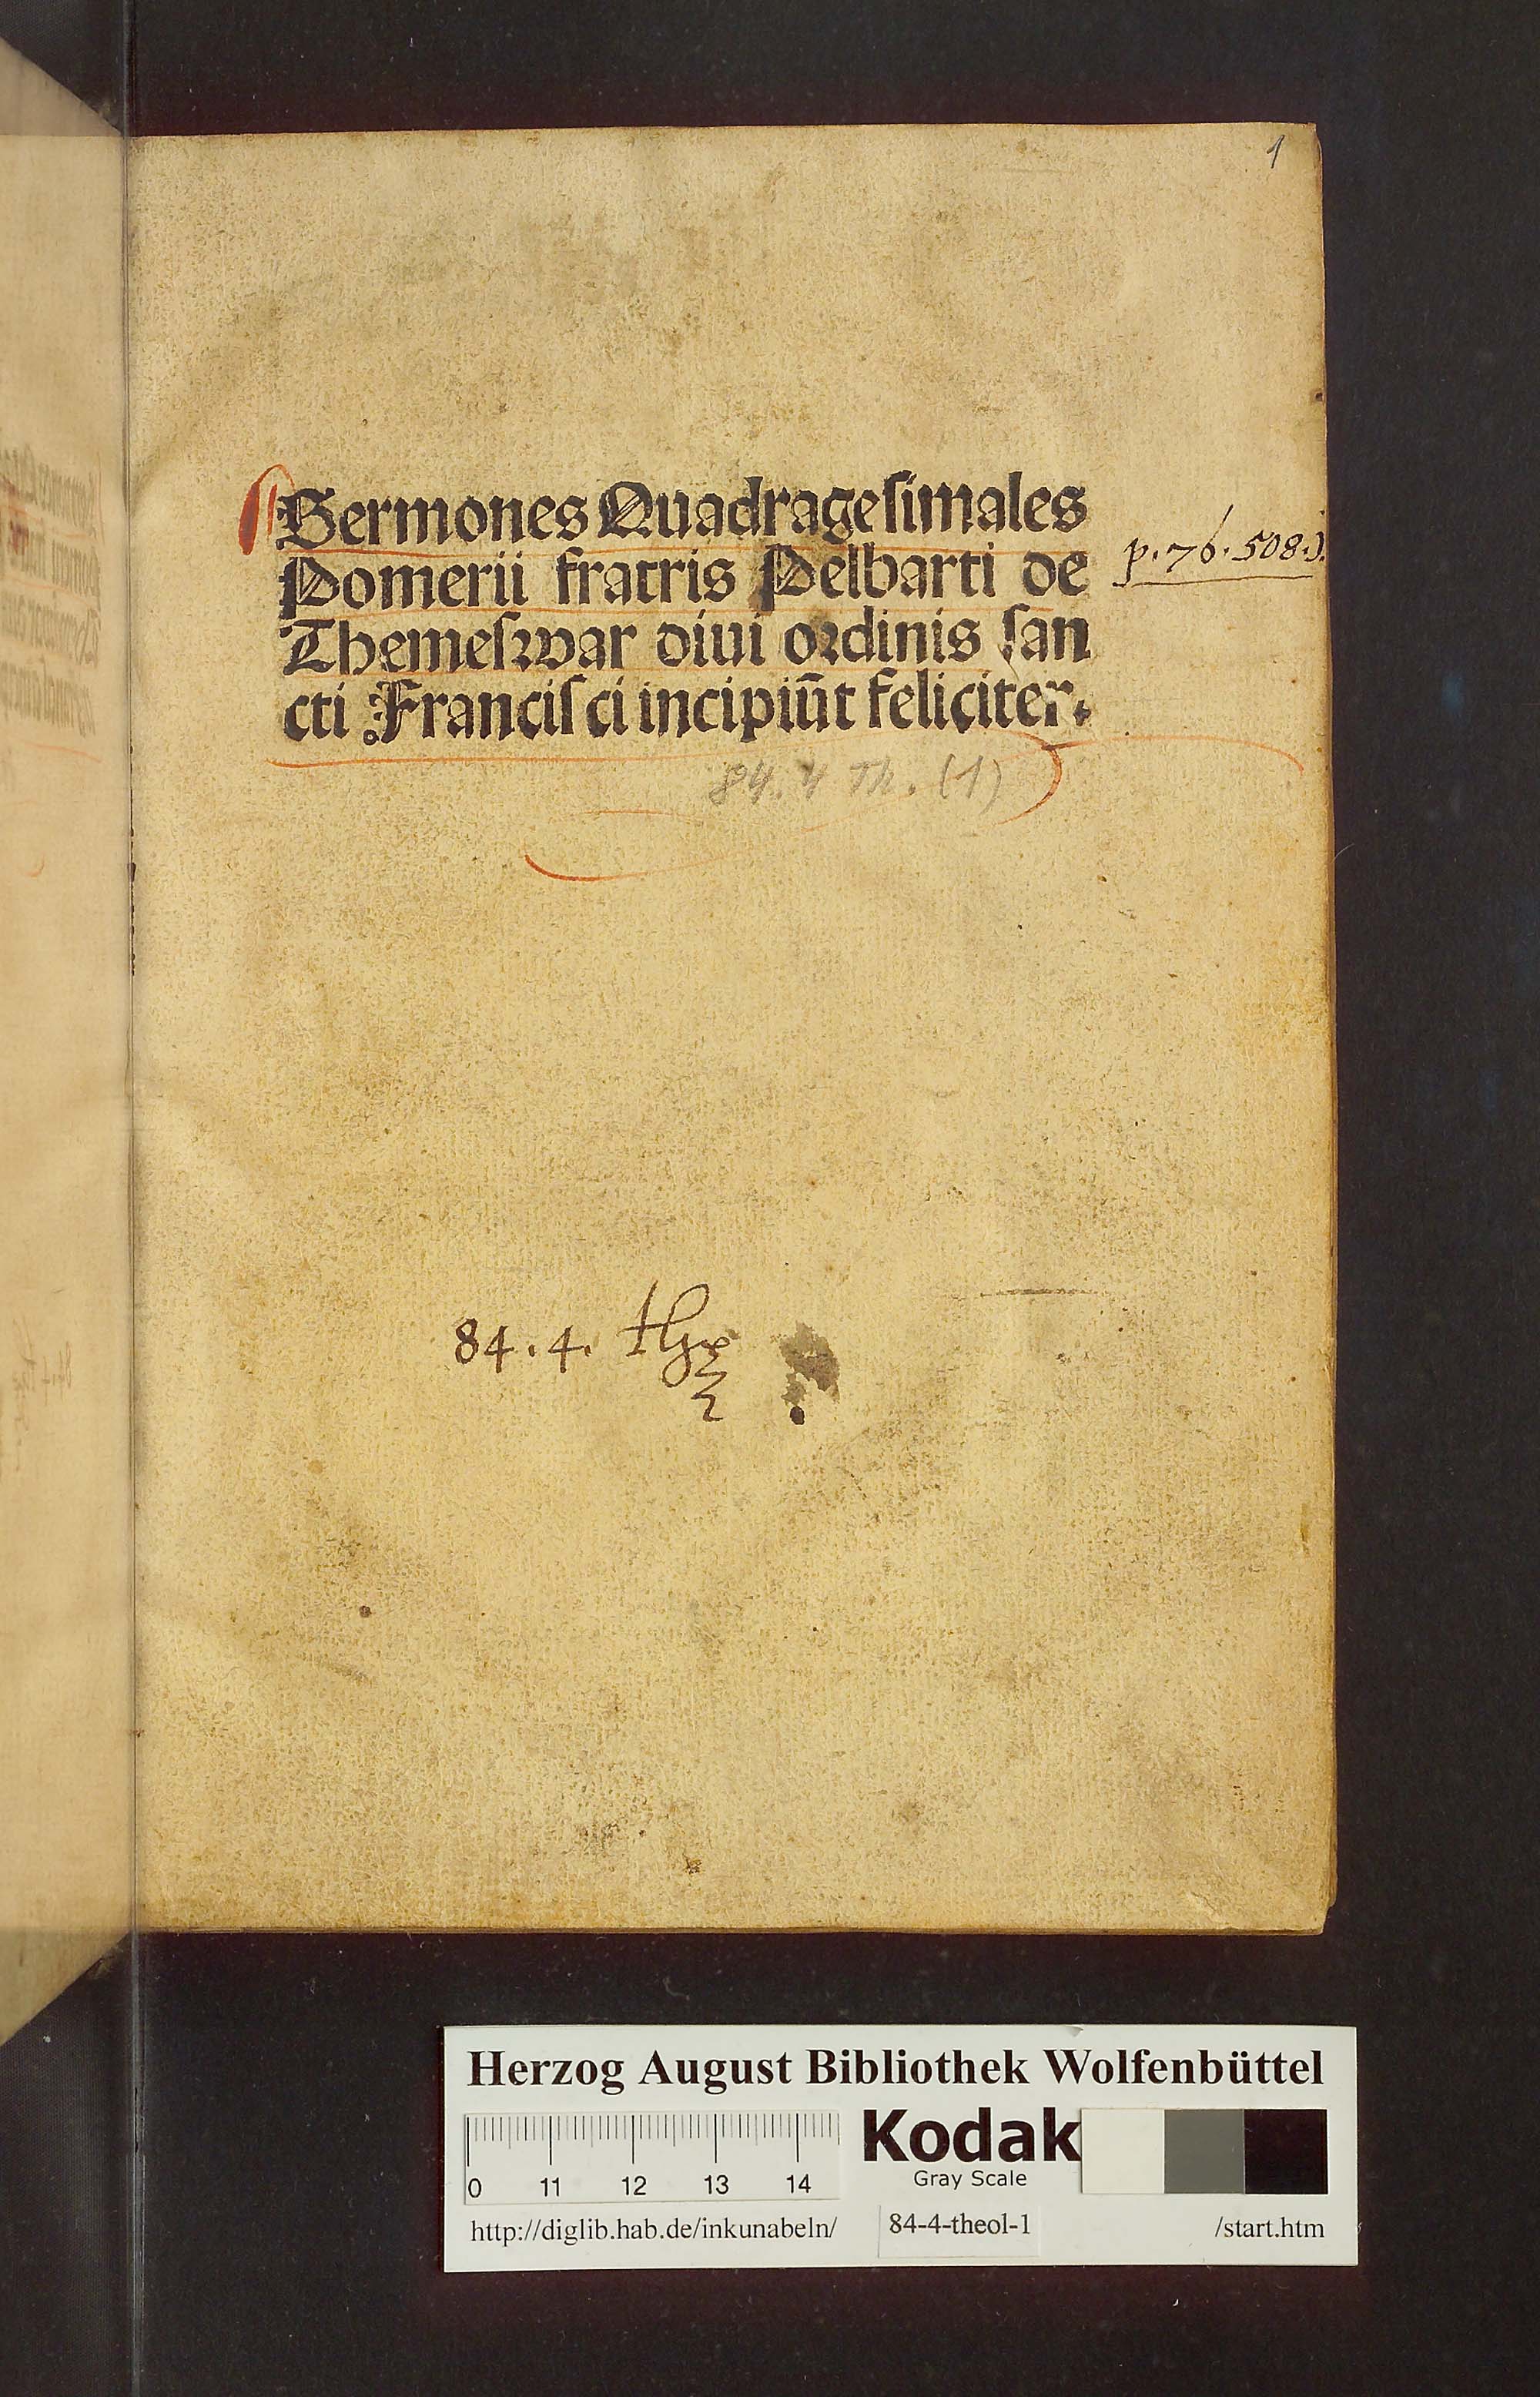 1
Sermones Quadrageſimales
Pomerii fratris Pelbarti de
Themeſꝛwar diui oꝛdinis ſan
cti Franciſci incipiūt feliciter.
p. 76. 508.
84. 4 Th. (1)
84. 4.
Herzog August Bibliothek Wolfenbüttel
0 11 12 13 14
Kodak
Gray Scale
http://diglib.hab.de/inkunabeln/ 84-4-theol-1 /start.htm